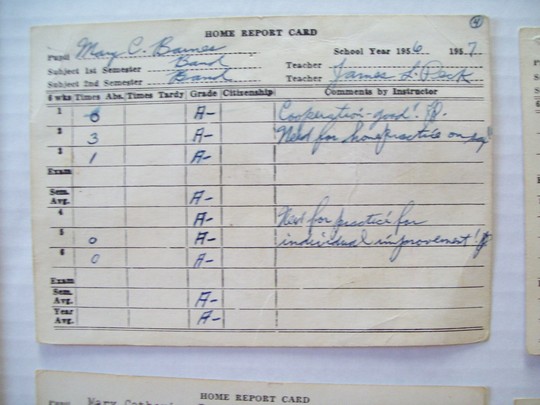 4
HOME REPORT CARD
Pupil Mary C. Barnes School Year 1956 1957
Subject 1st Semester Band Teacher
Subject 2nd Semester Band Teacher James L. Peck
6 wks Times Abs. Times Tardy Grade Citizenship Comments by Instructor
1 A- Cooperation-good!
2 3 A- Need for home practice on
3 1 A-
Exam
Sem. Avg. A-
4 A- Need for practice for
5 0 A- individual improvement!
6 0 A-
Exam
Sem. Avg. A-
Year Avg. A-
HOME REPORT CARD
Pupil Mary